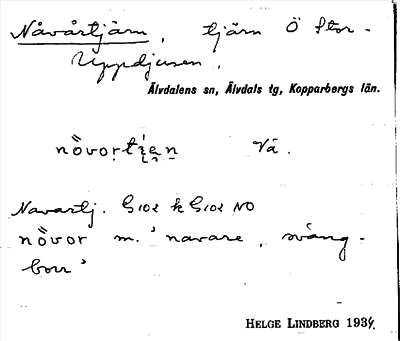 Nåvårtjärn, tjärn Ö Stor-
Uppdjusen.
Älvdalens sn, Älvdals tg, Kopparbergs län.
nȍvorti̯e̯n Vå.
Navartj. G102 k G102 NO
nȍvor m. 'navare, sväng-
borr'
HELGE LINDBERG 1934.